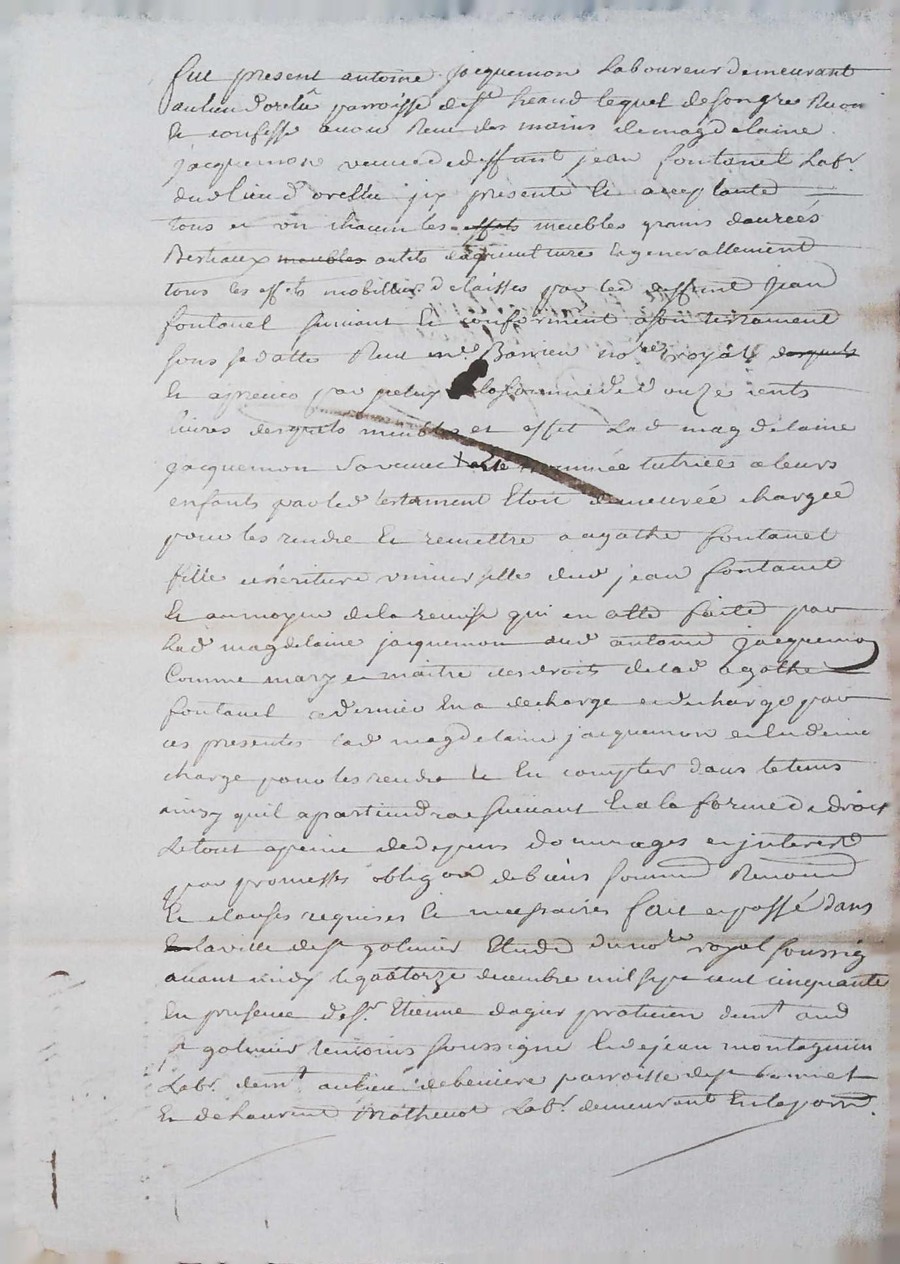 fut present antoine jacquemon Laboureur demeurant
au lieu d'orelü parroisse de st heand lequel de son gré Recon
Et confesse avoir Receu des mains de magdelaine
jacquemon veuve de deffunt jean fontanel Labr.
dud. lieu d'orellü jcy presente Et acceptante
tous et un chacun les effets meubles grains danrées
Bestiaux meubles outils d'agriculture Et generallement
tous les effets mobilliers delaissés par led. deffunt Jean
fontanel suivant Et conformemt a son testament
sous sa datte Receu me Barrieu nore royal desquels
Et apreciés par la somme de d'onze cents
livres desquels meubles et effet Lad. magdelaine
jacquemon sa veuve nommée tutrice a leurs
enfants par led. testament Etoit demeurée chargée
pour les rendre Et remettre a agathe fontanel
fille et heritiere universelle dud. jean fontanel
Et au moyen de la remise qui en a etté faite par
Lad. magdelaine jacquemon aud. antoine jacquemon
Comme mary et maitre des droits de lad. agathe
fontanel ce dernier En a decharge et decharge par
ces presentes lad. magdelaine jacquemon et en demeure
chargé pour les rendre Et En compter dans le tems
ainsy qu'il apartiendra suivant Et a la forme de droit
Le tout a peine de depens domages et jnterest
par promesses obligaon de biens soumon Renoncon
Et clauses requises Et necessaires fait et passé dans
la ville de st galmier Etude du nore royal soussigné
avant midy le quatorze decembre mil sept cent cinquante
En presence de sr. Etienne dagier praticien demt aud.
st galmier temoins soussigné Et de jean montagnieu
Labr. demt au lieu de parroisse de st bonnet
Et de Laurent Mathevot Labr. demeurant En la parr.